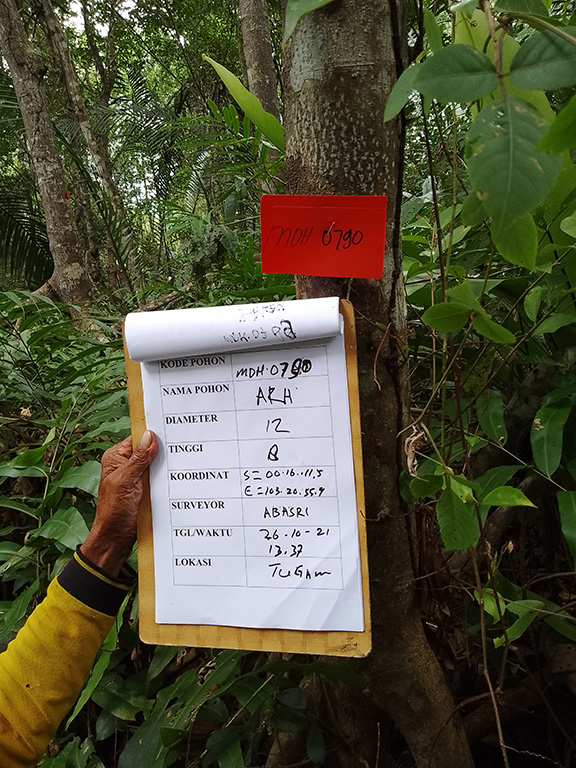 MDH 0790
KODE POHON MDH.0790
NAMA POHON ARA
DIAMETER 12
TINGGI 8
KOORDINAT S=00.16.11,5
E=103.20.55.9
SURVEYOR ABASRI
TGL/WAKTU 26.10-21
13.37
LOKASI